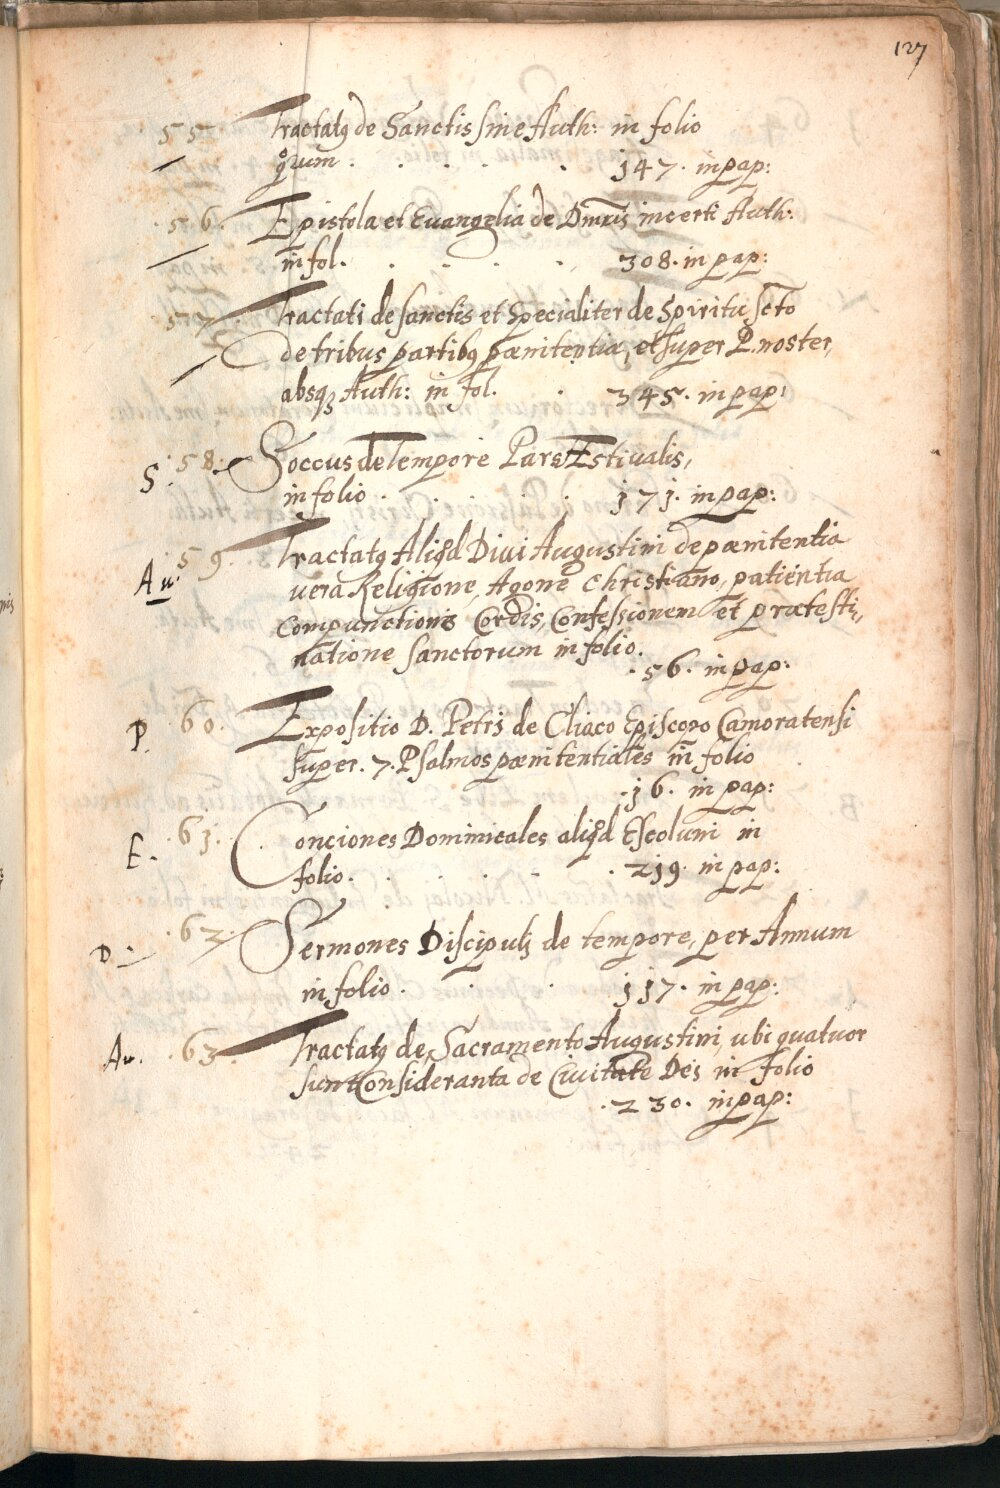 127
55 Tractatꝯ de Sanctis sine Auth: in folio
qͦrum . . . . . 147. in pap:
56. Epistola et Euangelia de Dm̄ris incerti Auth:
in fol. . . . . 308. in pap:
57. Tractati de sanctis et Specialiter de Spiritu scto
de tribus partibꝯ pænitentiæ, et super P. noster,
absqꝫ Auth: in fol. . 345. in pap:
S. 58. Soccus de Tempore Pars Estiualis,
in folio . . . . . 171. in pap:
Au. 59. Tractatꝯ Aliqͦd Diui Augustini de pænitentia
uera Religione, Agone Christiano, patientia
Compunctionis Cordis, Confessionem et prætesti,,
natione sanctorum in folio.
. 56. in pap:
P. 60. Expositio D. Petri de Cliaco Episcopo Camoratensi
super. 7. Psalmos pænitentiales in folio
. 16. in pap:
E. . 61. Conciones Dominicales aliqͦd Escoluni in
folio. . . . . . 219. in pap:
D. . 62. Sermones Discipuli de tempore, per Annum
in folio . . . 117. in pap:
Au. . 63. Tractatꝯ de Sacramento Augustini, ubi quatuor
sunt Consideranta de Ciuitate Dei in folio
. 230. in pap: